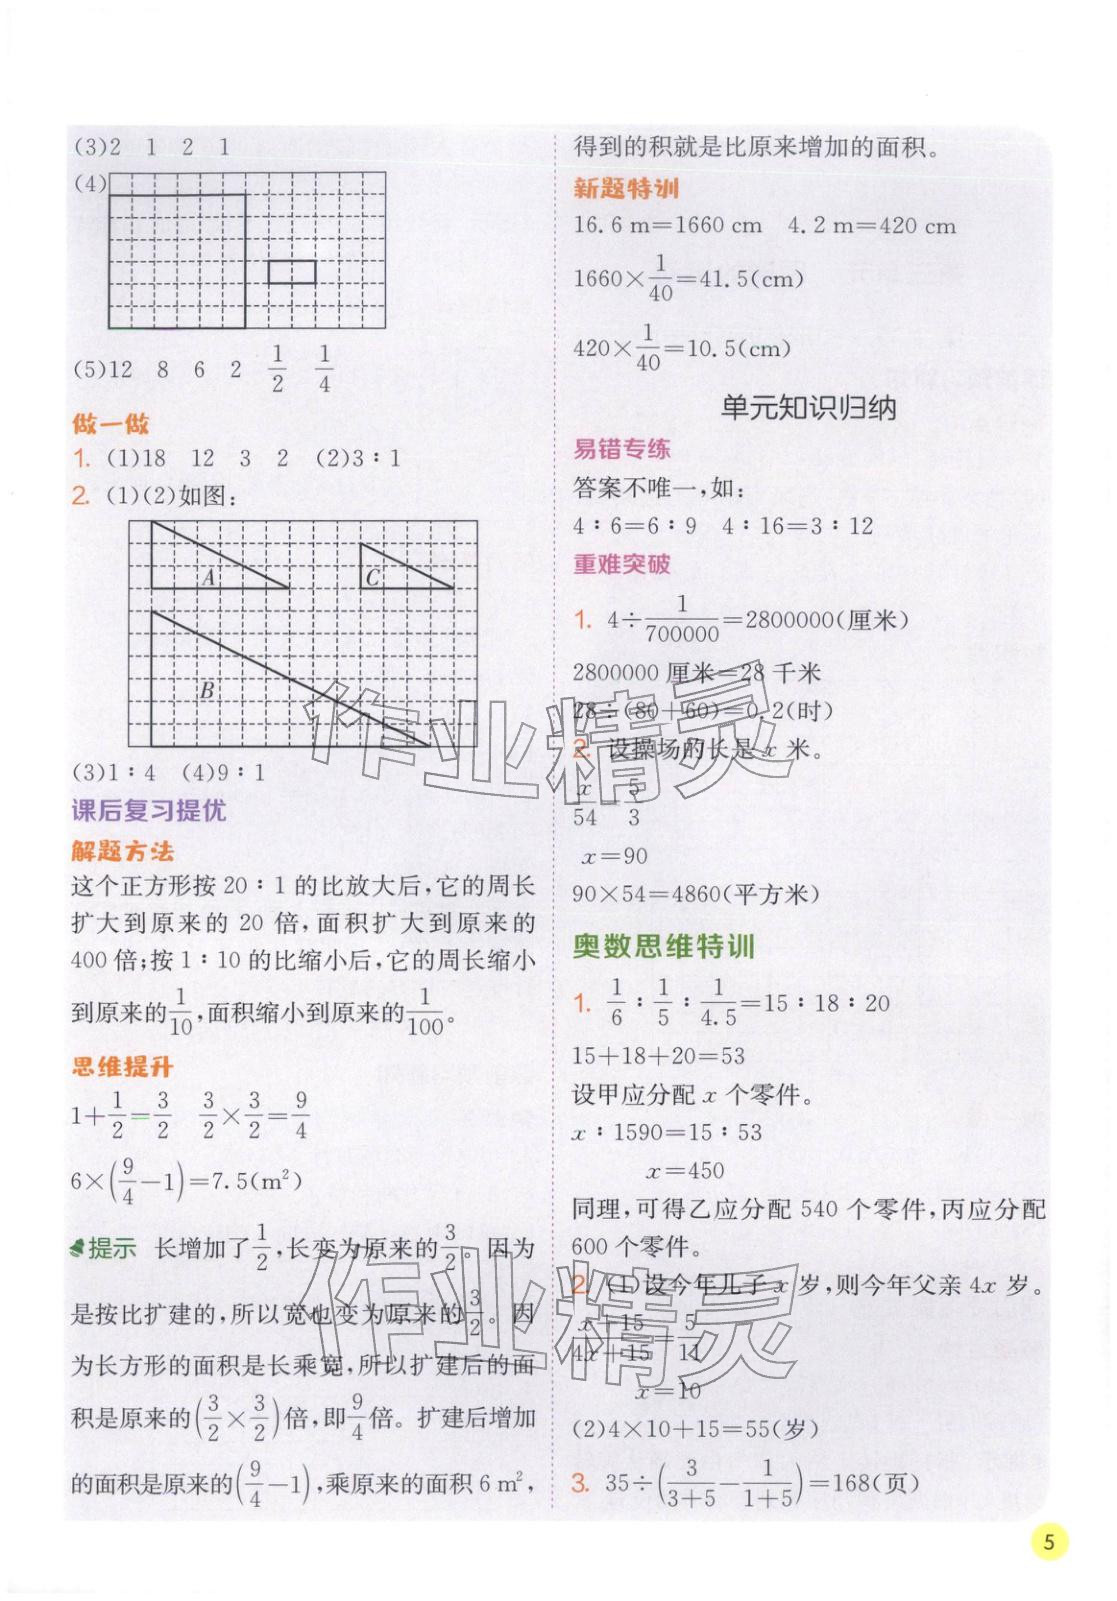 (3)2 1 2 1
(4)
(5)12 8 6 2 1/2 1/4
做一做
1. (1)18 12 3 2 (2)3∶1
2. (1)(2)如图:
A
C
B
(3)1∶4 (4)9∶1
课后复习提优
解题方法
这个正方形按 20∶1 的比放大后,它的周长
扩大到原来的 20 倍,面积扩大到原来的
400 倍;按 1∶10 的比缩小后,它的周长缩小
到原来的1/10,面积缩小到原来的1/100。
思维提升
1+1/2=3/2 3/2×3/2=9/4
6×(9/4-1)=7.5(m²)
提示 长增加了1/2,长变为原来的3/2。因为
是按比扩建的,所以宽也变为原来的3/2。因
为长方形的面积是长乘宽,所以扩建后的面
积是原来的(3/2×3/2)倍,即9/4倍。扩建后增加
的面积是原来的(9/4-1),乘原来的面积 6 m²,
得到的积就是比原来增加的面积。
新题特训
16.6 m=1660 cm 4.2 m=420 cm
1660×1/40=41.5(cm)
420×1/40=10.5(cm)
单元知识归纳
易错专练
答案不唯一,如:
4∶6=6∶9 4∶16=3∶12
重难突破
1. 4÷1/700000=2800000(厘米)
2800000 厘米=28 千米
28÷(80+60)=0.2(时)
2. 设操场的长是 x 米。
x/54=5/3
x=90
90×54=4860(平方米)
奥数思维特训
1. 1/6∶1/5∶1/4.5=15∶18∶20
15+18+20=53
设甲应分配 x 个零件。
x∶1590=15∶53
x=450
同理,可得乙应分配 540 个零件,丙应分配
600 个零件。
2. (1)设今年儿子 x 岁,则今年父亲 4x 岁。
x+15/4x+15=5/11
x=10
(2)4×10+15=55(岁)
3. 35÷(3/3+5-1/1+5)=168(页)
5
作业精灵
作业精灵